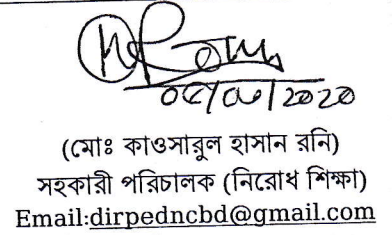 ০৫/০৩/২০২০
(মোঃ কাওসারুল হাসান রনি)
সহকারী পরিচালক (নিরোধ শিক্ষা)
Email:dirpedncbd@gmail.com